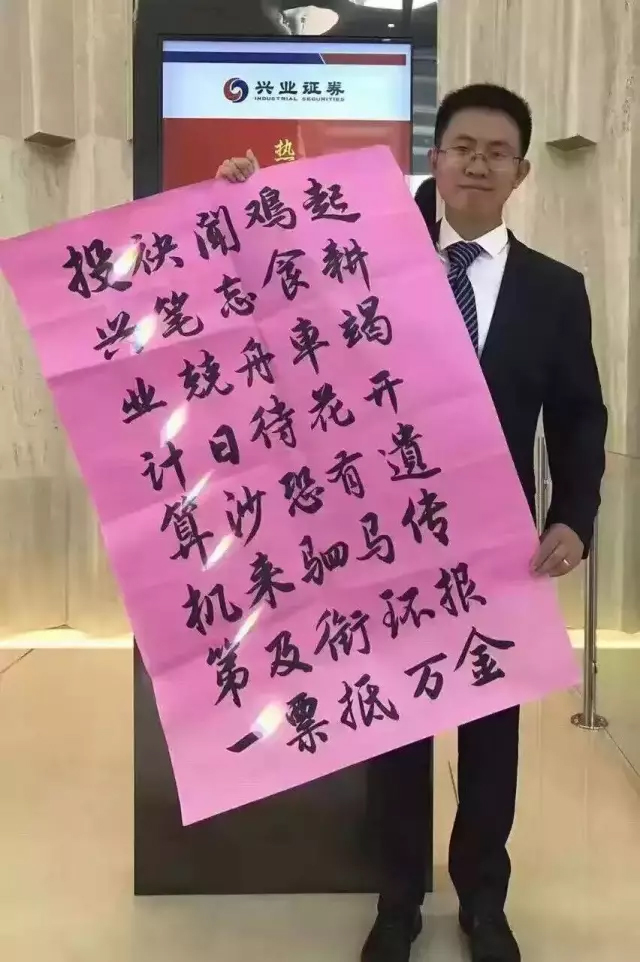 兴业证券
INDUSTRIAL SECURITIES
热
投袂闻鸡起
兴笔忘食耕
业兢舟車竭
计日待花开
算沙恐有遗
机来驷马传
第及衔环报
一票抵万金